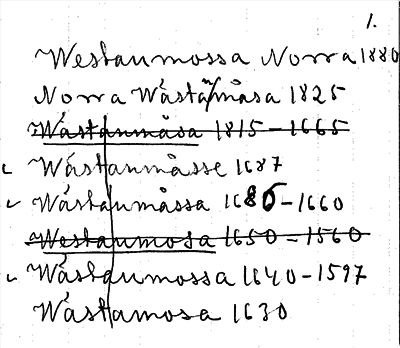 1.
Westaumossa Norra 1880
Norra Wästanmåsa 1825
Wästanmåsa 1815-1665
Wästaumåsse 1687
Wästaumåssa 1686-1660
Westaumosa 1650-1560
Wästaumossa 1640-1597
Wästamosa 1630